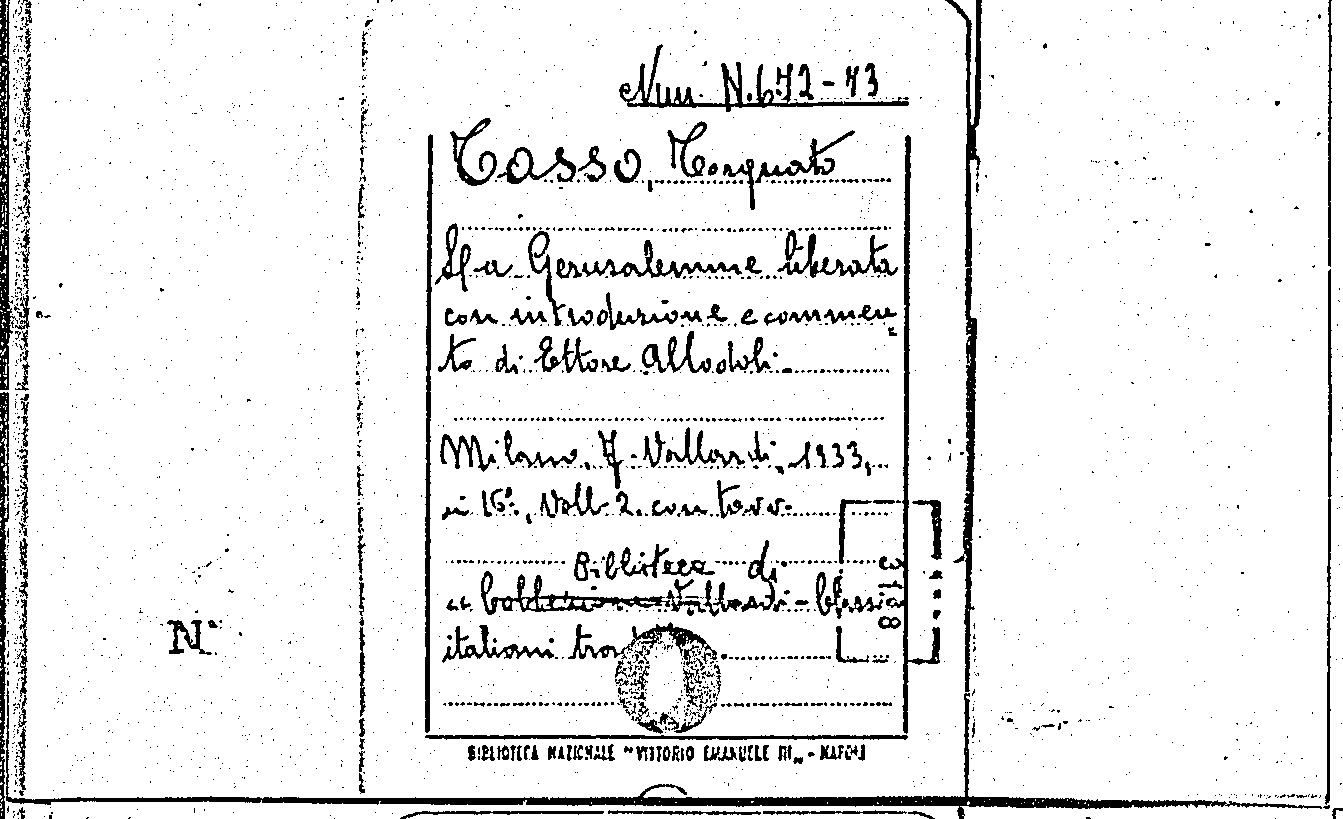 Nun. N. 672-73
Tasso, Torquato
La Gerusalemme liberata
con introduzione e commen
to di Ettore Allodoli.
Milano, F. Vallardi, 1933,
in 16°, Voll. 2. con tavv.
Biblioteca di
« Collezione Vallardi - Classici
italiani
N°
BIBLIOTECA NAZIONALE "VITTORIO EMANUELE III„ - NAPOLI